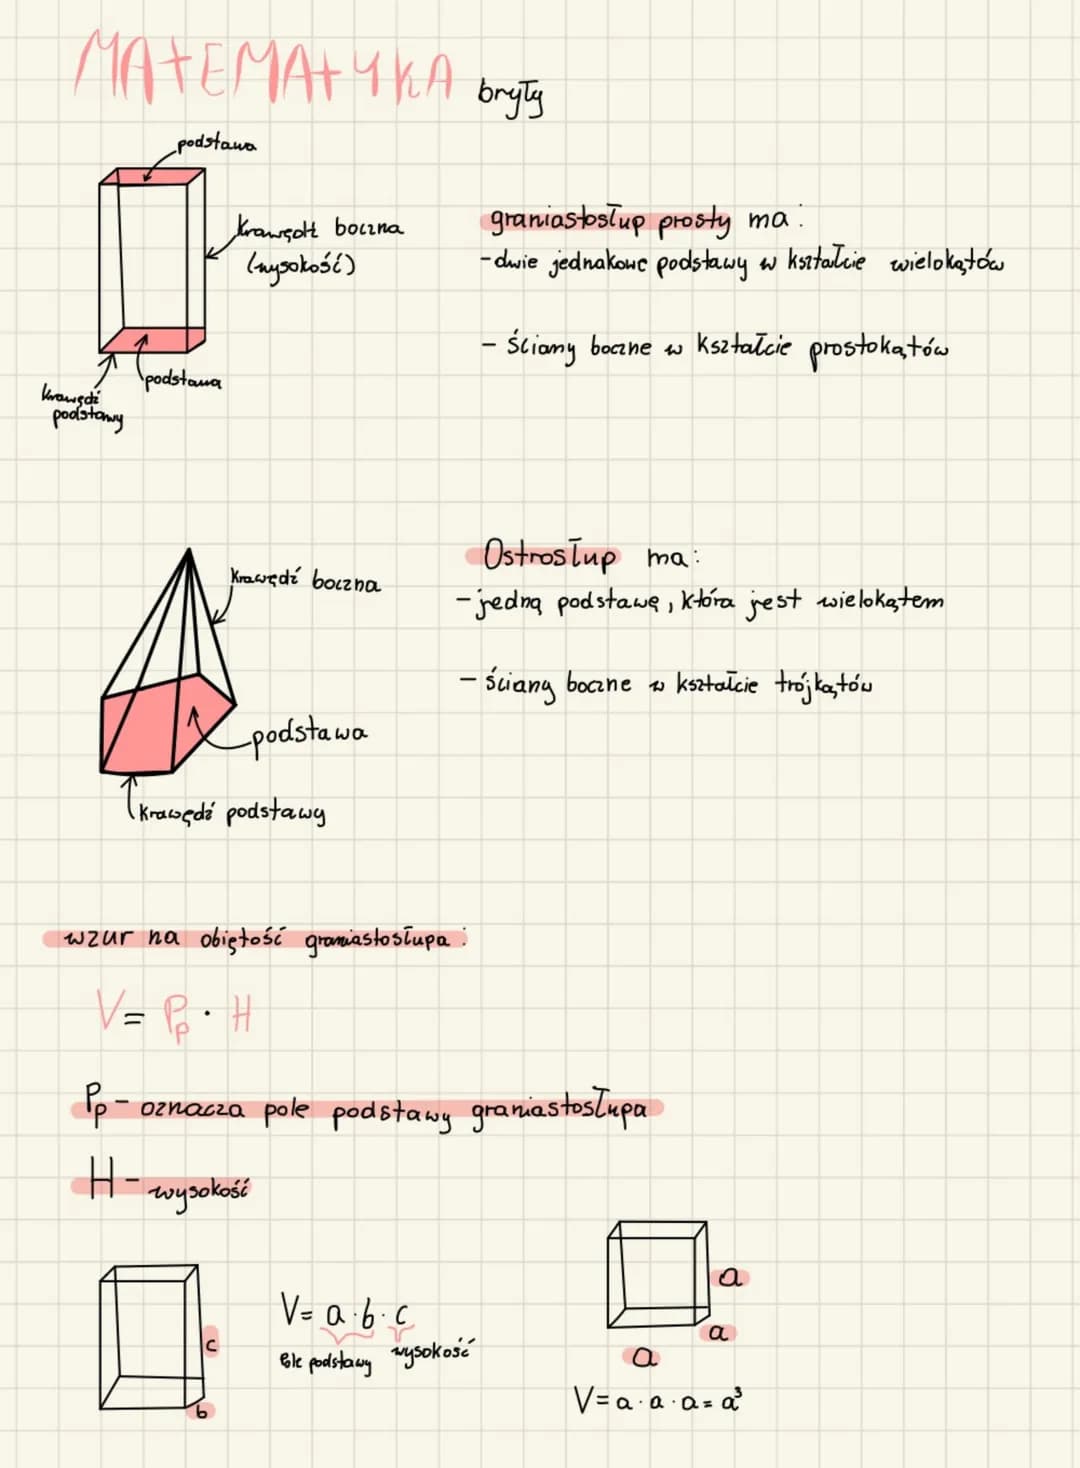 MATEMATYKA bryły
podstawa
krawędź boczna
(wysokość)
podstawa
krawędź
podstawy
graniastosłup prosty ma:
- dwie jednakowe podstawy w kształcie wielokątów
- ściany boczne w kształcie prostokątów
krawędź boczna
podstawa
krawędź podstawy
Ostrosłup ma:
- jedną podstawę, która jest wielokątem
- ściany boczne w kształcie trójkątów
wzur na obiętość graniastosłupa:
V = Pp · H
Pp - oznacza pole podstawy graniastosłupa
H - wysokość
c
b
V = a · b · c
Pole podstawy wysokość
a
a
a
V = a · a · a = a³